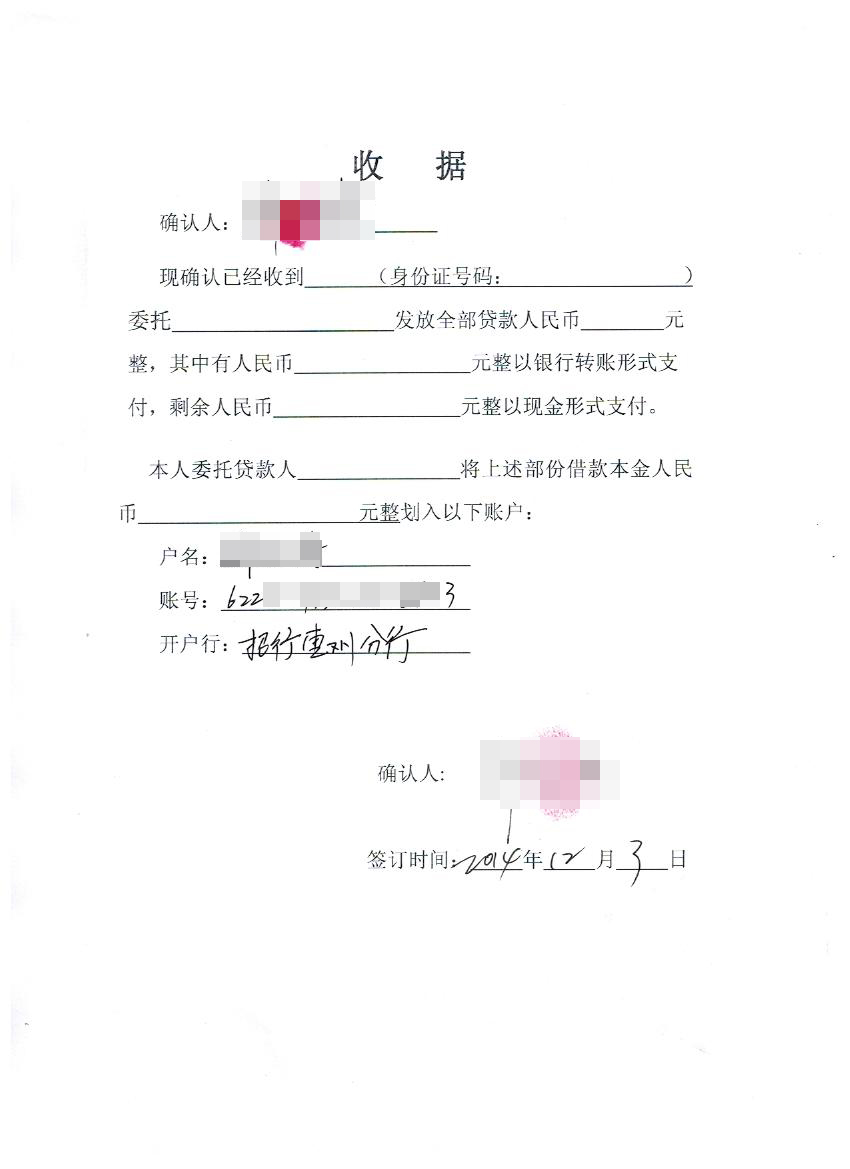 收 据
确认人：
现确认已经收到______（身份证号码：__________________）
委托______________________发放全部贷款人民币________元
整，其中有人民币_________________元整以银行转账形式支
付，剩余人民币__________________元整以现金形式支付。
本人委托贷款人________________将上述部份借款本金人民
币______________________元整划入以下账户：
户名：
账号：622 3
开户行：招行惠州分行
确认人:
签订时间:2014年12月3日